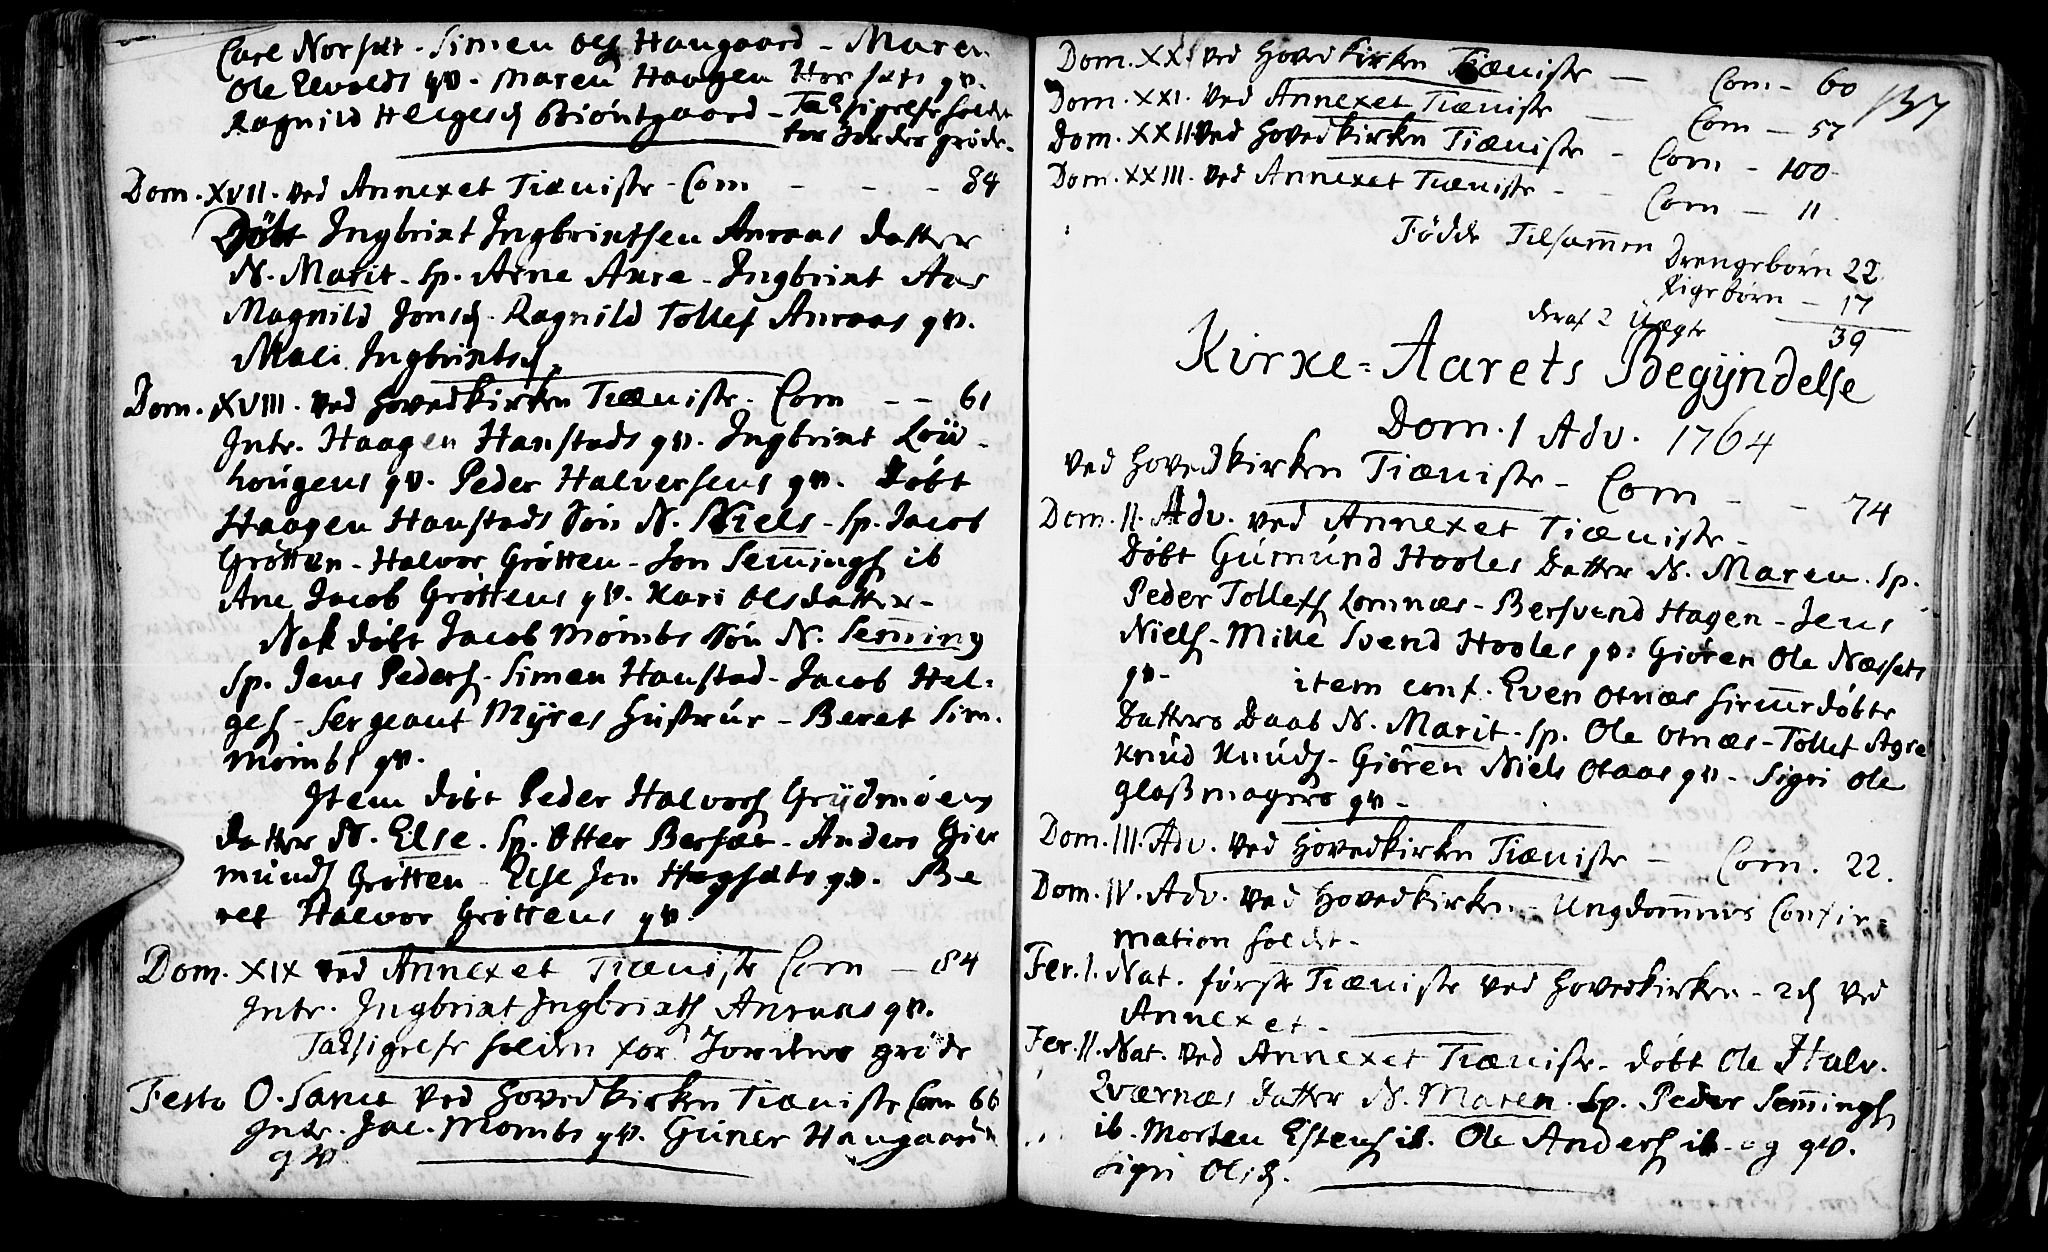 Carl Norsæt - Simen Ols Haugaard - Maren
Ole Elvolds qv. Maren Haagen Horsæts qv.
Ragnild Helgesd Biöntgaard - Taksigelse holdet
for Jordes gröde.
Dom. XVII. ved Annexet Tieniste - Com - - - 84
Döbt Ingbrixt Ingbrixtsen Anraas datter
N. Marit. Sp. Arne Aure - Ingbrixt Aas
Magnild Jonsd. Ragnild Tollef Anraas qv.
Mali Ingbrixtsd.
Dom. XVIII. ved Hovedkirken Tieniste - Com - - 61
Intr. Haagen Hanstads qv. Ingbrixt Löv-
hougens qv. Peder Halversens qv. Döbt
Haagen Hanstads Sön N. Niels - Sp. Jacob
Grötten - Halvor Grötten - Jon Semings ib
Ane Jacob Gröttens qv. Kari Olsdatter -
Nok döbt Jacob Mömbs Sön N. Seming
Sp. Jens Peders - Simen Hanstad - Jacob Hel-
ges - Sergeant Myres Hustrue - Beret Sim.
Mömbs qv.
Item döbt Peder Halvors Grydmöens
datter N. Else. Sp. Otter Bersæt - Anders Gu
munds Grötten - Else Jon Hogsæts qv. Be
ret Halvor Gröttens qv.
Dom. XIX ved Annexet Tieniste Com - 84
Intr. Ingbrixt Ingbrixts Anraas qv.
Taksigelse holden for Jordens gröde
Festo O. Sanct ved Hovedkirken Tieniste Com 66
Intr. Jac. Mombs qv. Guner Haugaards
qv
Dom. XXI ved Hovedkirken Tieniste - Com - 60
137
Dom. XXI. ved Annexet Tieniste - Com - 57
Dom. XXII ved Hovedkirken Tieniste - Com - 100
Dom. XXIII. ved Annexet Tieniste - - Com - 11.
Födde Tilsamen Drengebörn 22
Pigebörn - 17
deraf 2 Uægte 39
Kirke-Aarets Begyndelse
Dom. 1 Adv. 1764
ved Hovedkirken Tieniste - Com - - 74
Dom. II. Adv. ved Annexet Tieniste -
Döbt Gumund Hooles Datter N. Maren. Sp.
Peder Tollefs Lomnæs - Bersvend Hagen - Jens
Niels - Mille Svend Hooles qv. Giören Ole Næssets
qv - item conf. Even Otnæs hiemedöbte
Datters Daab N. Marit. Sp. Ole Otnæs - Tollef Agre
Knud Knuds - Giören Niels Otaas qv - Sigri Ole
glasmagers qv -
Dom. III. Adv. ved Hovedkirken Tieniste - Com. 22.
Dom. IV. Adv. ved Hovedkirken - Ungdommens Confir-
mation holdt -
Fer. I. Nat. förste Tieniste ved Hovedkirken - 2d ved
Annexet -
Fer. II. Nat. ved Annexet Tieniste - döbt Ole Halv.
Qværnæs datter N. Maren. Sp. Peder Semings
ib. Morten Estens ib. Ole Anders ib - og qv.
Sigri Olsd.